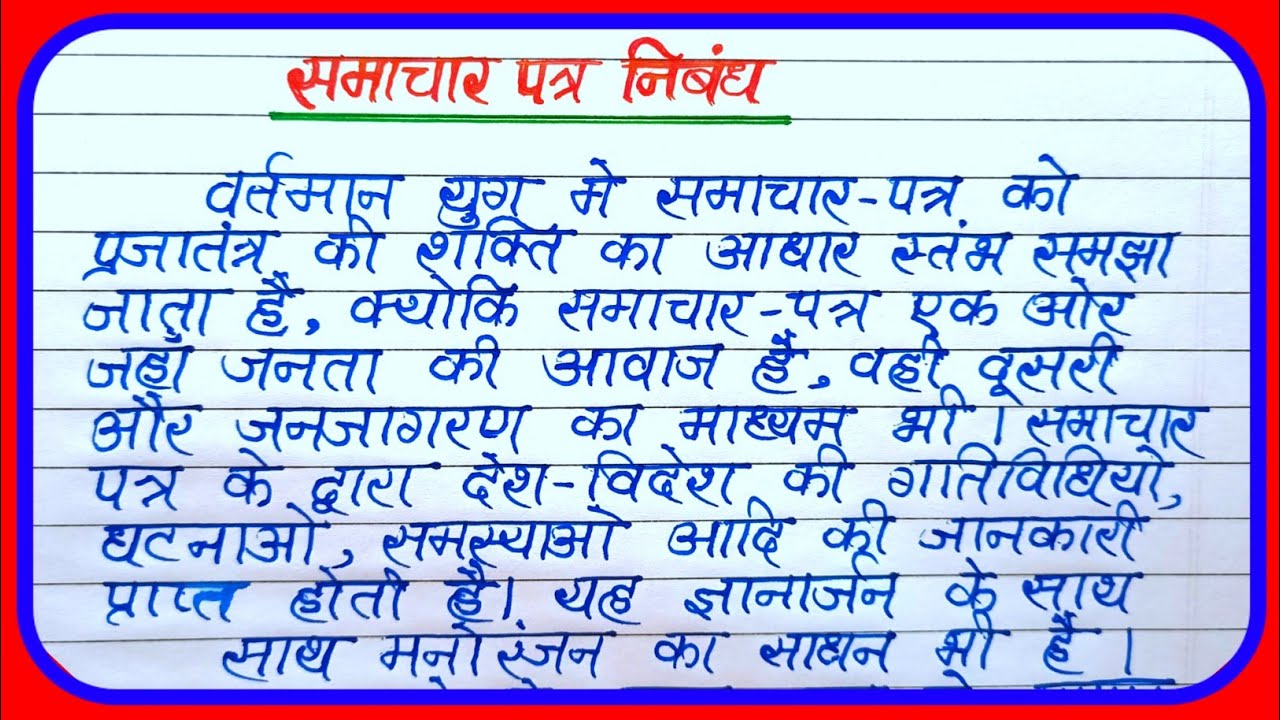 समाचार पत्र निबंध
वर्तमान युग मे समाचार-पत्र को
प्रजातंत्र की शक्ति का आधार स्तंभ समझा
जाता है, क्योकि समाचार-पत्र एक ओर
जहाँ जनता की आवाज है, वही दूसरी
और जनजागरण का माध्यम भी । समाचार
पत्र के द्वारा देश-विदेश की गतिविधियो,
घटनाओ, समस्याओ आदि की जानकारी
प्राप्त होती है। यह ज्ञानार्जन के साथ
साथ मनोरंजन का साधन भी है ।